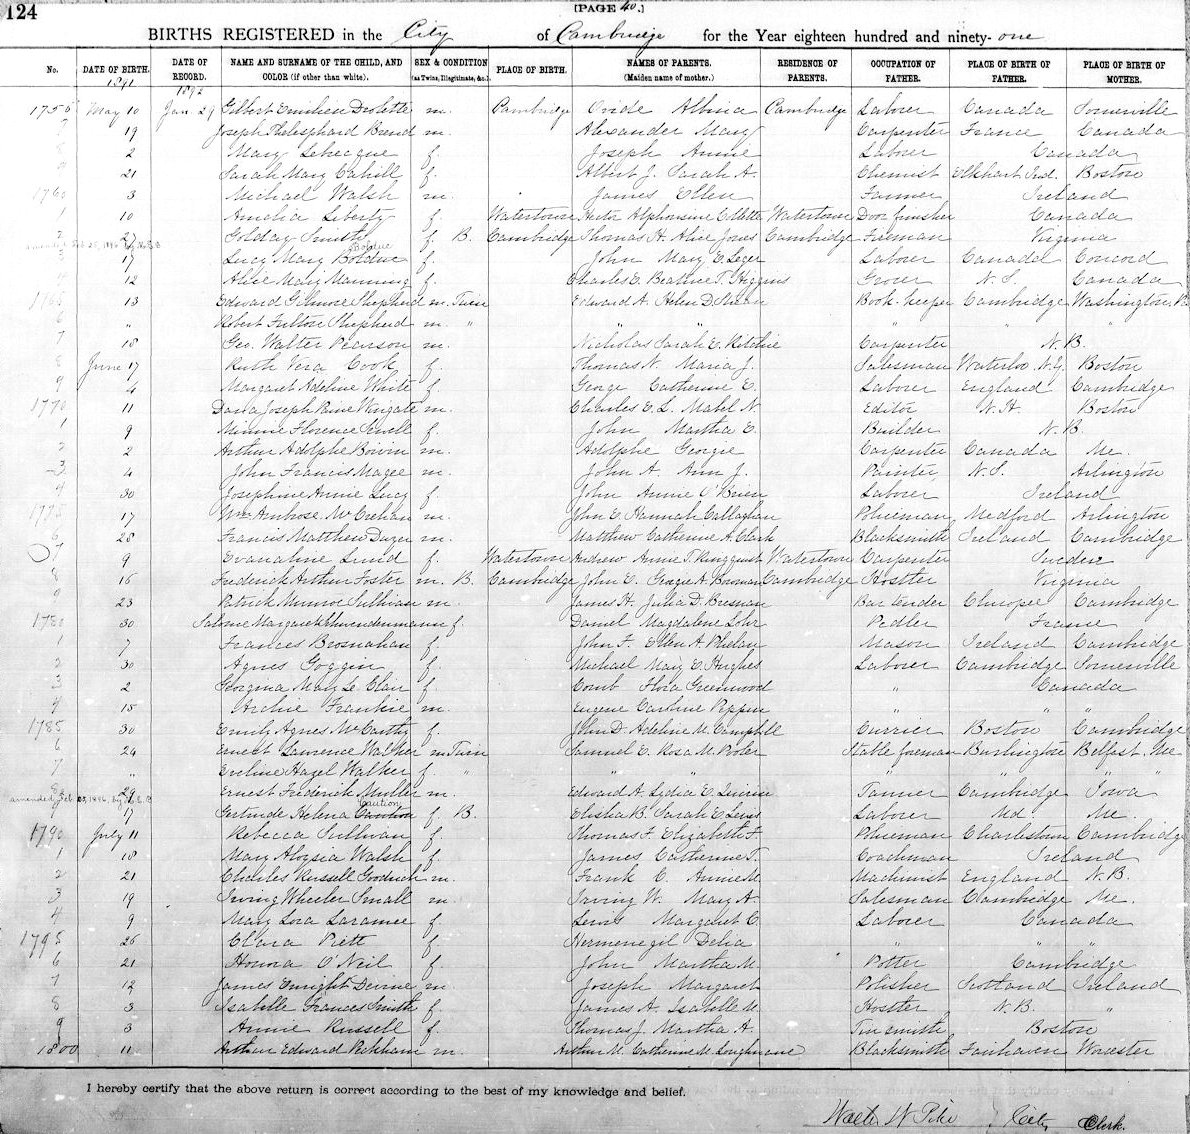 124
[PAGE 40.]
BIRTHS REGISTERED in the City of Cambridge for the Year eighteen hundred and ninety-one
No. DATE OF BIRTH. DATE OF RECORD. NAME AND SURNAME OF THE CHILD, AND COLOR (if other than white). SEX & CONDITION (as Twins, Illegitimate, &c.) PLACE OF BIRTH. NAMES OF PARENTS. (Maiden name of mother.) RESIDENCE OF PARENTS. OCCUPATION OF FATHER. PLACE OF BIRTH OF FATHER. PLACE OF BIRTH OF MOTHER.
1891 1892
May 10 Jan 29 Gilbert Drolette m. Cambridge Ovide Albina Cambridge Laborer Canada Somerville
7 19 Joseph m. Alexander Mary Carpenter France Canada
8 2 Mary f. Joseph Annie Laborer Canada
9 21 Sarah Mary Cahill f. Albert J. Sarah A. Chemist Elkhart Ind. Boston
1760 3 Michael Walsh m. James Ellen Farmer Ireland
1 10 Amelia Liberty f. Watertown Hector Alphonsine Watertown Door finisher Canada
2 27 Golday Smith f. B. Cambridge Thomas H. Alice Jones Cambridge Fireman Virginia
Boldue
3 17 Lucy Mary f. John Mary E. Leger Laborer Canada Concord
4 12 Alice Mary Manning f. Charles E. Beatrice T. Higgins Grocer N.S. Canada
1765 13 Edward Gilmore Shepherd m. Twin Edward A. Helen D. Book keeper Cambridge Washington
6 " Robert Fulton Shepherd m. " " " " " "
7 18 Geo. Walter Pearson m. Nicholas Sarah E. Ritchie Carpenter N.B.
8 June 17 Ruth Vera Cook f. Thomas N. Maria J. Salesman Waterloo N.Y. Boston
9 4 Margaret Adeline White f. George Catherine C. Laborer England Cambridge
1770 11 Dana Joseph Paine Wingate m. Charles E. L. Mabel N. Editor N.H. Boston
1 9 Minnie Florence f. John Martha E. Builder N.B.
2 2 Arthur Adolphe Boivin m. Adolphe Georgie Carpenter Canada Me.
3 4 John Francis Magee m. John A. Ann J. Painter N.S. Arlington
4 30 Josephine Annie Lucy f. John Annie O'Brien Laborer Ireland
1775 17 Wm Ambrose McCrehan m. John E. Hannah Callaghan Policeman Medford Arlington
6 28 Francis Matthew m. Matthew Catherine A. Clark Blacksmith Ireland Cambridge
7 9 Evanaline Lund f. Watertown Andrew Annie T. Watertown Carpenter Sweden
8 16 Frederick Arthur Foster m. B. Cambridge John E. Georgie A. Bowman Cambridge Hostler Virginia
9 23 Patrick Munroe Sullivan m. James H. Julia D. Bresnan Bar tender Chicopee Cambridge
1780 30 Salome Margaret f. Daniel Magdalene Lohr Pedler France
1 7 Frances Brosnahan f. John F. Ellen A. Phelan Mason Ireland Cambridge
2 30 Agnes Goggin f. Michael Mary E. Hughes Laborer Cambridge Somerville
3 2 Georgina Mary Le Clair f. Flora Greenwood " Canada
4 15 Archie Frankie m. Eugene Caroline " " "
1785 30 Emily Agnes McCarthy f. John D. Adeline M. Campbell Currier Boston Cambridge
6 24 Ernest Lawrence Walker m Twin Samuel E. Rosa M. Stable foreman Burlington Belfast Me
7 " Eveline Hazel Walker f. " " " " " "
8 29 Ernest Frederick Muller m. Edward A. Lydia E. Tanner Cambridge Iowa
Caution
9 17 Gertrude Helena f. B. Elisha B. Sarah E. Lewis Laborer Md. Me.
1790 July 11 Rebecca Sullivan f. Thomas F. Elizabeth F. Policeman Charlestown Cambridge
1 18 Mary Aloysia Walsh f. James Catherine T. Coachman Ireland
2 21 Charles Russell Goodrich m. Frank C. Annie M. Machinist England N.B.
3 19 Irving Wheeler Small m Irving W. Mary A. Salesman Cambridge Me.
4 9 Mary Lora Laramee f. Lewis Margaret C. Laborer Canada
1795 26 Clara f. Hermenegil Delia " " "
6 21 Honora O'Neil f. John Martha M. Potter Cambridge
7 12 James Enright Devine m. Joseph Margaret Polisher Scotland Ireland
8 3 Isabelle Frances Smith f. James A. Isabelle M. Hostler N.B. "
9 3 Annie Russell f. Thomas J. Martha A. Tinsmith Boston
1800 11 Arthur Edward Peckham m. Arthur M. Catherine M. Blacksmith Fairhaven Worcester
I hereby certify that the above return is correct according to the best of my knowledge and belief.
Walter W Pike City Clerk.